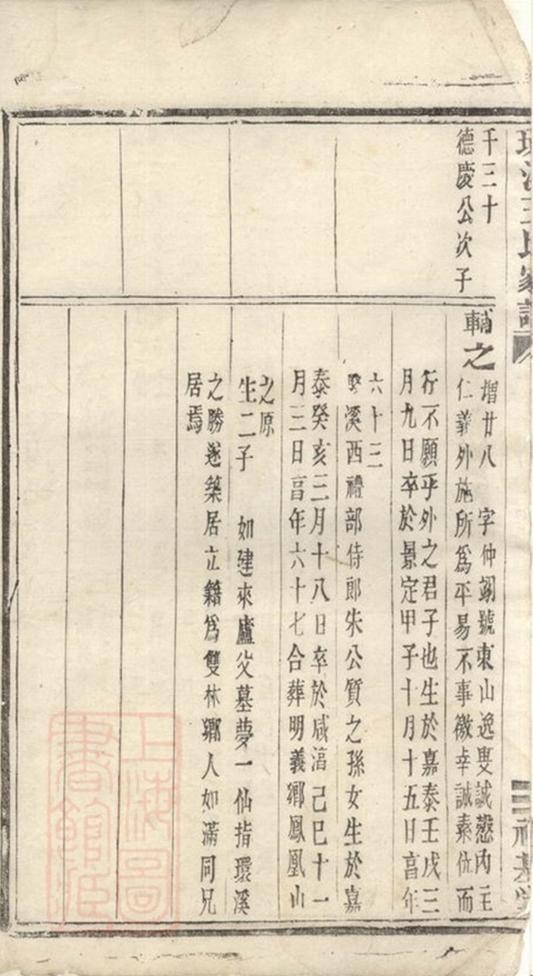 王氏家譜
千三十
德慶公次子
輔之
增廿八 字仲翊號東山逸叟誠愨內主
仁義外施所爲平易不事徼幸誠素位而
行不願乎外之君子也生於嘉泰壬戌三
月九日卒於景定甲子十月十五日亯年
六十三
娶溪西禮部侍郎朱公質之孫女生於嘉
泰癸亥三月十八日卒於咸淳己巳十一
月三日亯年六十七合葬明義鄉鳳凰山
之原
生二子 如建來廬父墓夢一仙指環溪
之勝遂築居立籍爲雙林鄉人如滿同兄
居焉
上海圖
書館藏